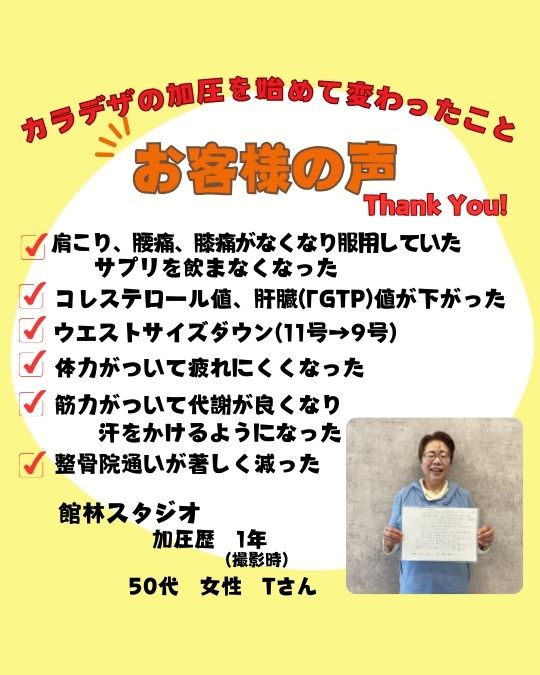 カラデザの加圧を始めて変わったこと
お客様の声
Thank You!
肩こり、腰痛、膝痛がなくなり服用していた
サプリを飲まなくなった
コレステロール値、肝臓(ΓGTP)値が下がった
ウエストサイズダウン(11号→9号)
体力がついて疲れにくくなった
筋力がついて代謝が良くなり
汗をかけるようになった
整骨院通いが著しく減った
館林スタジオ
加圧歴 1年
(撮影時)
50代 女性 Tさん